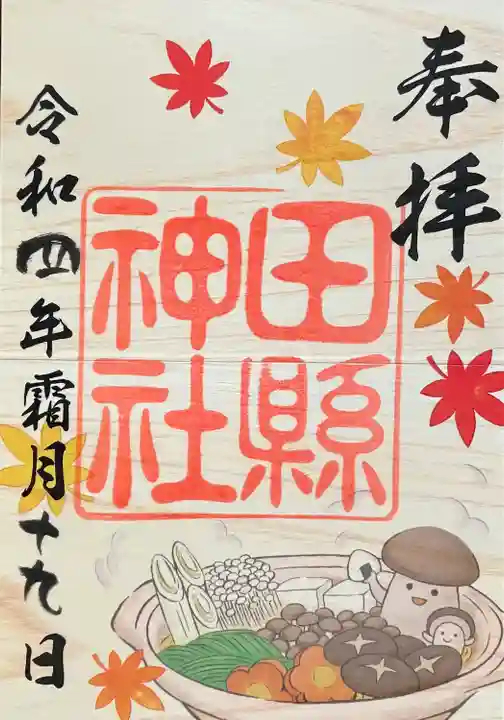 奉拝
田縣
神社
令和四年霜月十九日